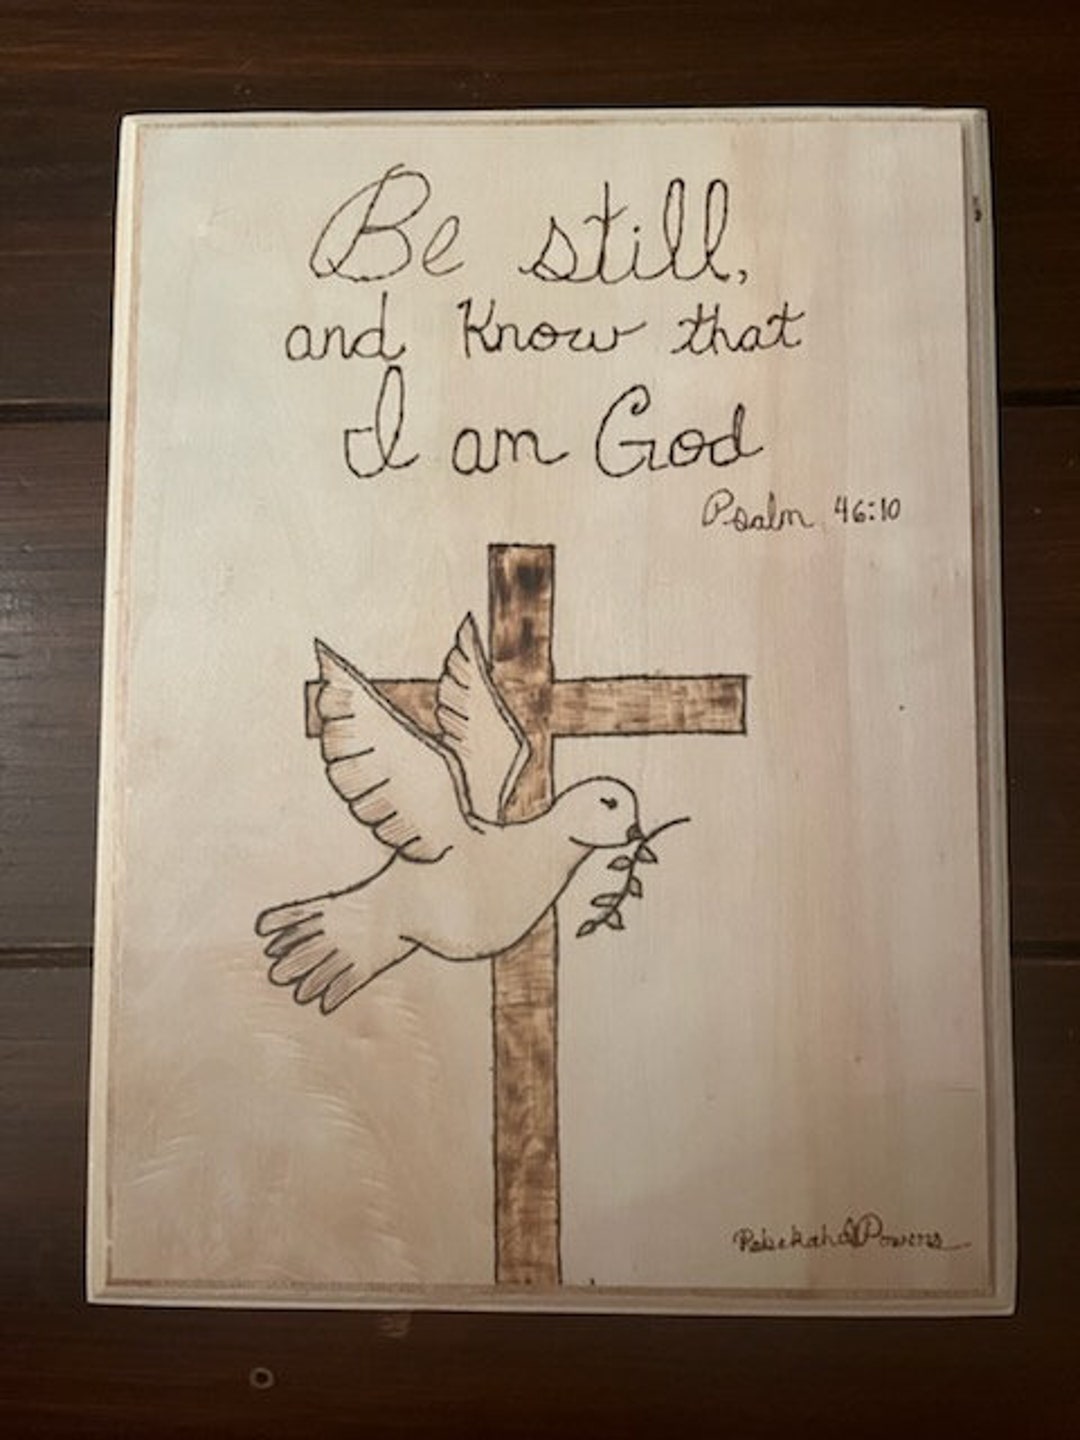 Be still,
and Know that
I am God
Psalm 46:10
Rebekah